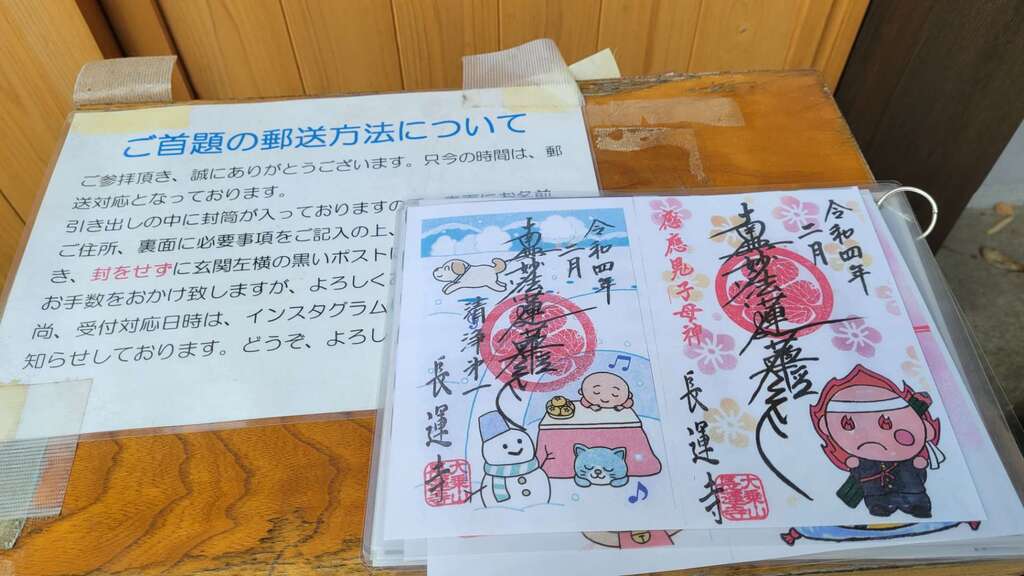 ご首題の郵送方法について
ご参拝頂き、誠にありがとうございます。只今の時間は、郵
送対応となっております。
引き出しの中に封筒が入っておりますの
にお名前
ご住所、裏面に必要事項をご記入の上、
き、封をせずに玄関左横の黒いポスト
お手数をおかけ致しますが、よろしく
尚、受付対応日時は、インスタグラム
知らせしております。どうぞ、よろし
令和四年
二月
南無妙法蓮華経
清浄米一
長運寺
大乗山
長運寺
令和四年
二月
南無妙法蓮華経
鬼子母神
長運寺
大乗山
長運寺